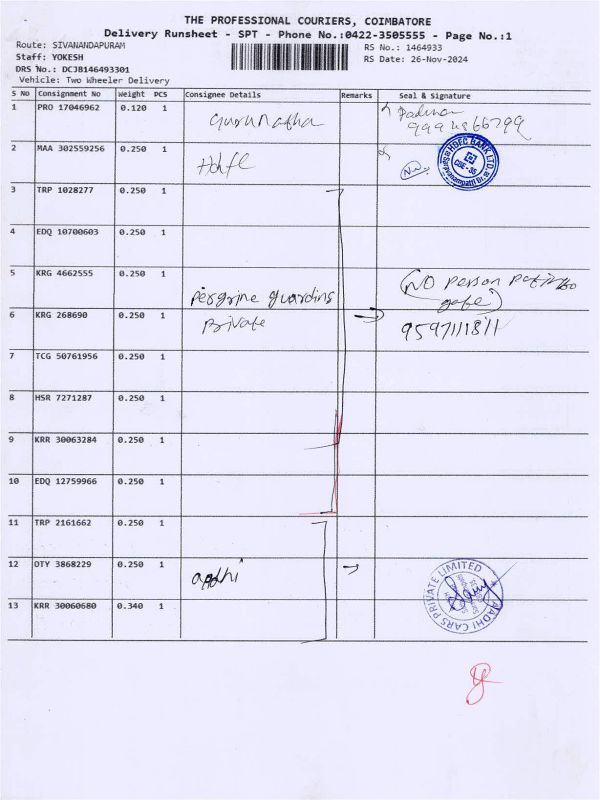 THE PROFESSIONAL COURIERS, COIMBATORE
Delivery Runsheet - SPT - Phone No.:0422-3505555 - Page No.:1
Route: SIVANANDAPURAM
RS No.: 1464933
Staff: YOKESH
RS Date: 26-Nov-2024
DRS No.: DCJB146493301
Vehicle: Two Wheeler Delivery
S No Consignment No Weight PCS Consignee Details Remarks Seal & Signature
1 PRO 17046962 0.120 1 gurunatha
2 MAA 302559256 0.250 1 Hdfc HDFC BANK LTD.
3 TRP 1028277 0.250 1
4 EDQ 10700603 0.250 1
5 KRG 4662555 0.250 1 Peregrine guardins (NO person
gate)
6 KRG 268690 0.250 1 private 9597111811
7 TCG 50761956 0.250 1
8 HSR 7271287 0.250 1
9 KRR 30063284 0.250 1
10 EDQ 12759966 0.250 1
11 TRP 2161662 0.250 1
12 OTY 3868229 0.250 1 AADHI CARS PRIVATE LIMITED
13 KRR 30060680 0.340 1